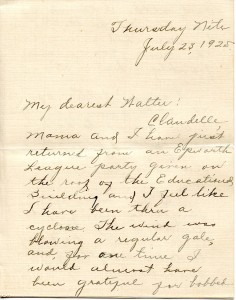 Thursday Nite
July 23, 1925
My dearest Walter:
Claudelle,
Mama and I have just
returned from an Epworth
League party given on
the roof of the Educational
Building and I feel like
I have been thru a
cyclone. The wind was
blowing a regular gale,
and, for one time I
would almost have
been grateful for bobbed